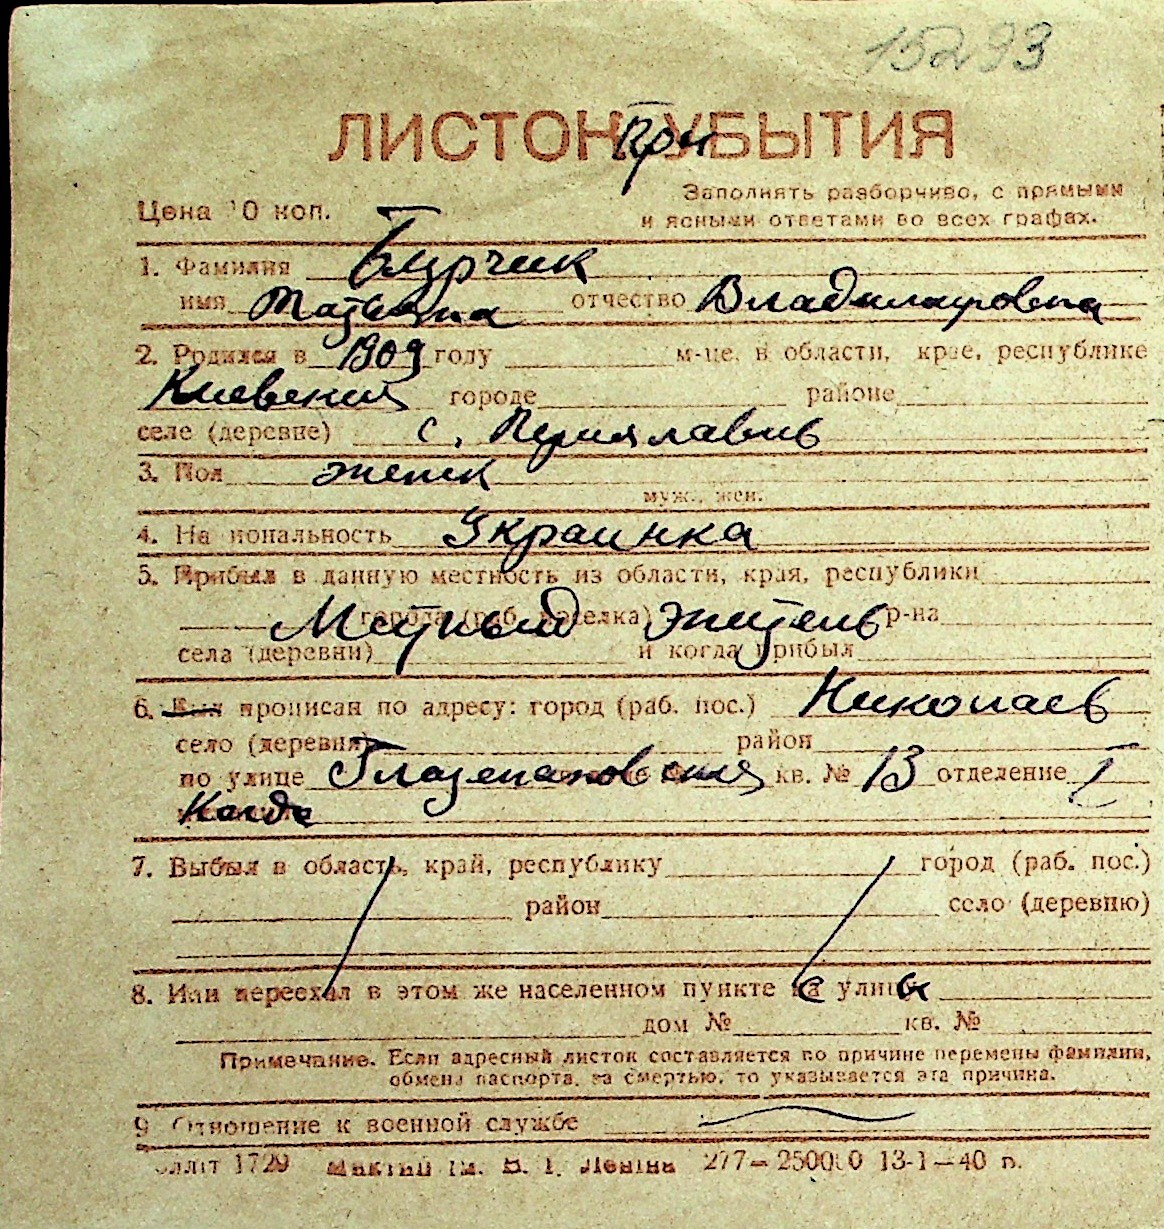 15293
ЛИСТОК УБЫТИЯ
При
Цена 10 коп.
Заполнять разборчиво, с прямыми
и ясными ответами во всех графах.
1. Фамилия Бурчик
имя Татьяна отчество Владимировна
2. Родился в 1909 году м-це, в области, крае, республике
Киевский городе районе
селе (деревне) с.
3. Пол женск
муж., жен.
4. Национальность Украинка
5. Прибыл в данную местность из области, края, республики
города (раб. поселка) р-на
Местный житель
села (деревни) и когда прибыл
6. прописан по адресу: город (раб. пос.) Николаев
село (деревня) район
по улице кв. № 13 отделение I
Когда
7. Выбыл в область, край, республику город (раб. пос.)
район село (деревню)
8. Или переехал в этом же населенном пункте с улицы
дом № кв. №
Примечание. Если адресный листок составляется по причине перемены фамилии,
обмена паспорта, за смертью, то указывается эта причина.
9. Отношение к военной службе
1729 ім. В. І. Леніна 277—250000 13-1—40 п.